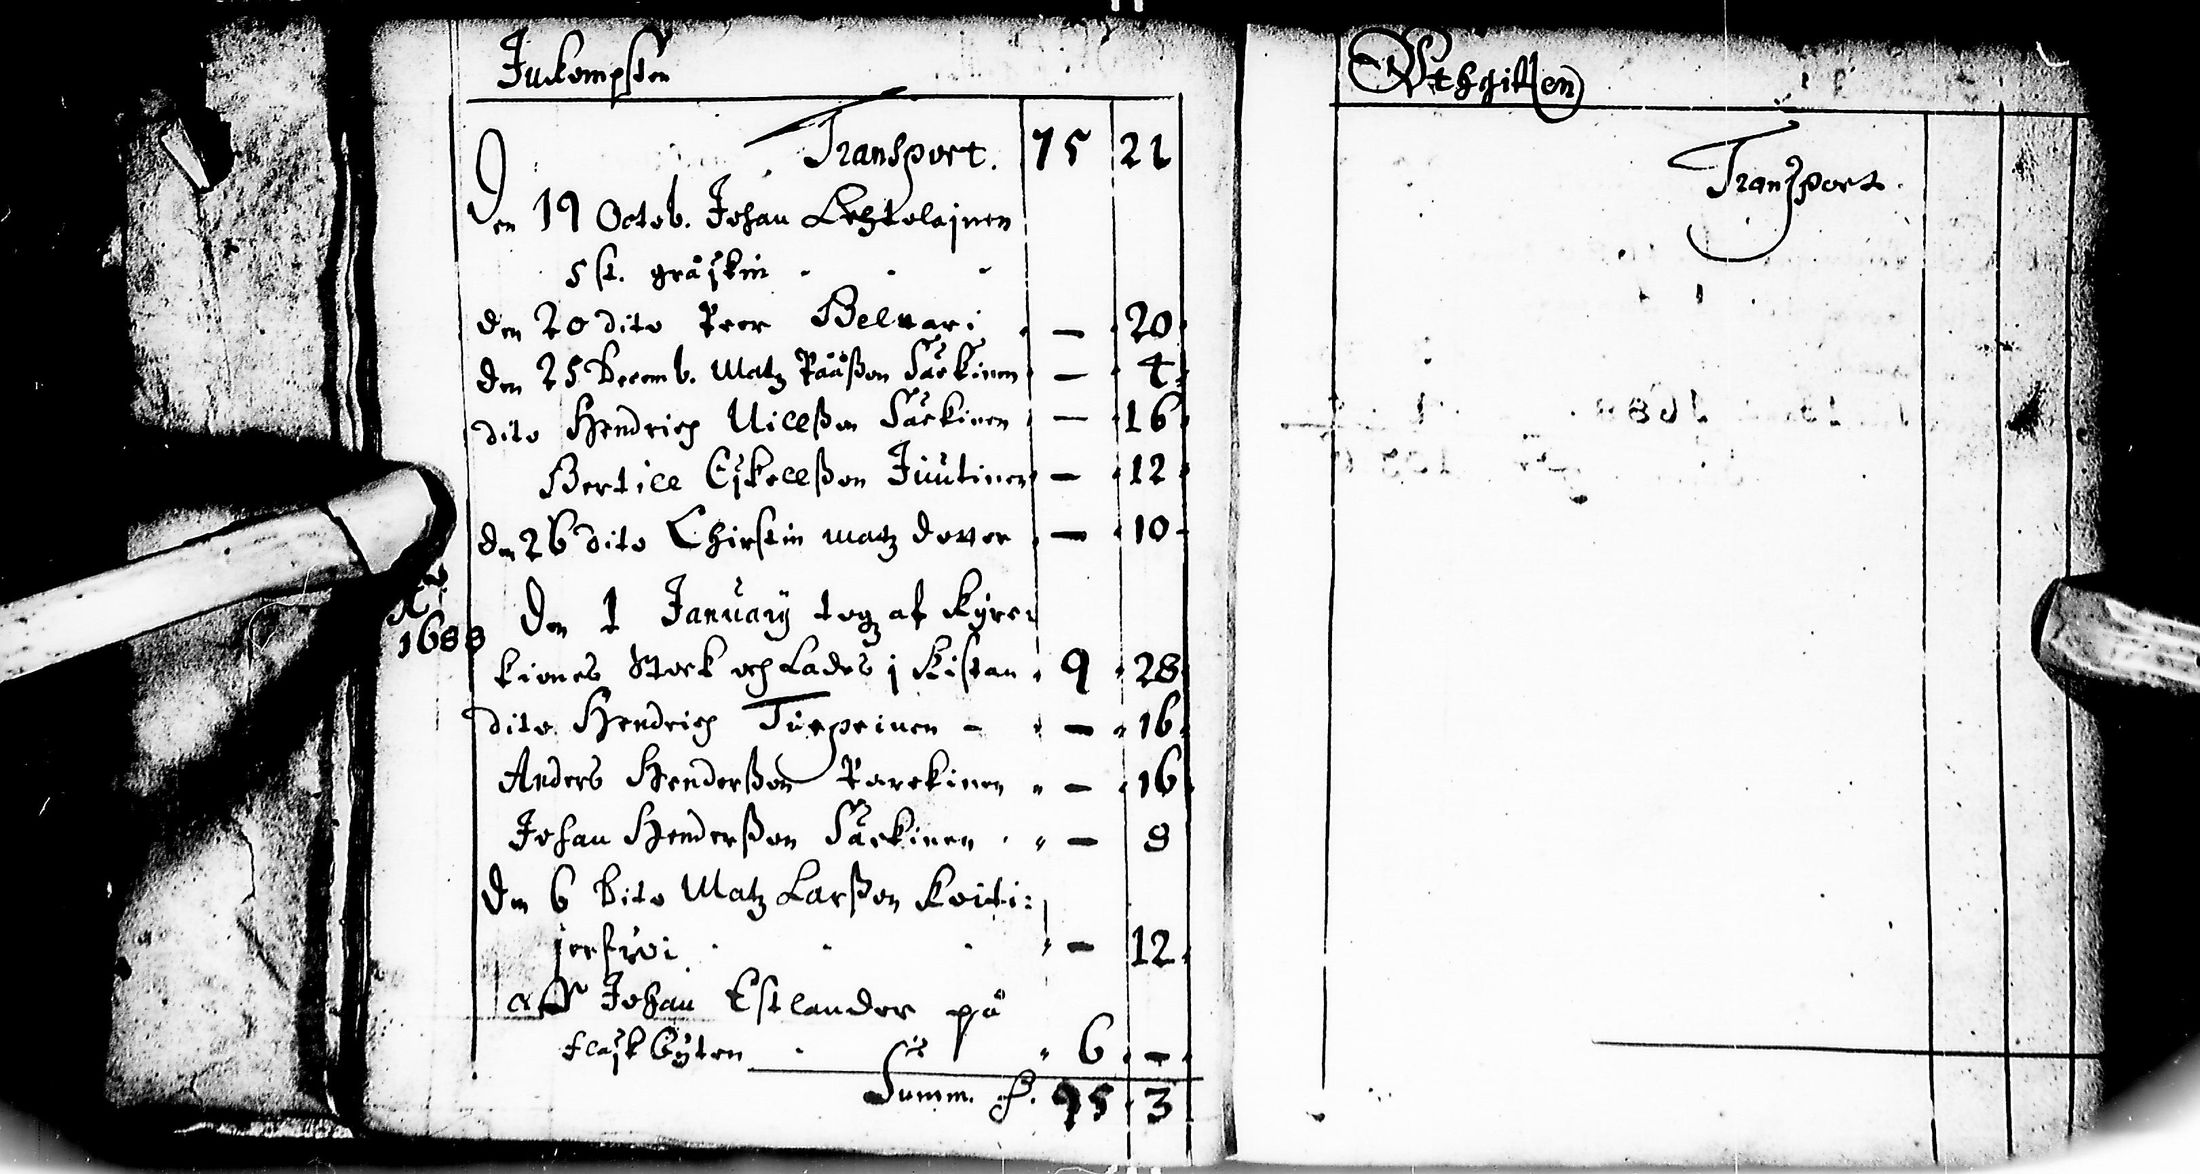 Inkompsten
Transport. 75 21
Den 19 Octob. Johan Lehtolainen
5 st. gråskin - - -
den 20 dito Peer Belvari — 20
den 25 Decemb. Matz Pååßon Särkinen — 4
dito Hendrich Nilßon Särkinen — 16
Bertill Eskellßon Juutinen — 12
den 26 dito Chirstin matz doter — 10
Ao
1688
Den 1 January togz af Kyrc:
kiones Stock och Lades i Kistan 9 28
dito Hendrich Turpeinen - — 16
Anders Henderßon Parckinen — 16
Johan Henderßon Särkinen — 8
Den 6 Dito Matz Larßon Koiti:
jerfwi — 12
aff Johan Estlander på
flaskbyten 6 —
Summ. 95 3
Uthgifften
Transport.